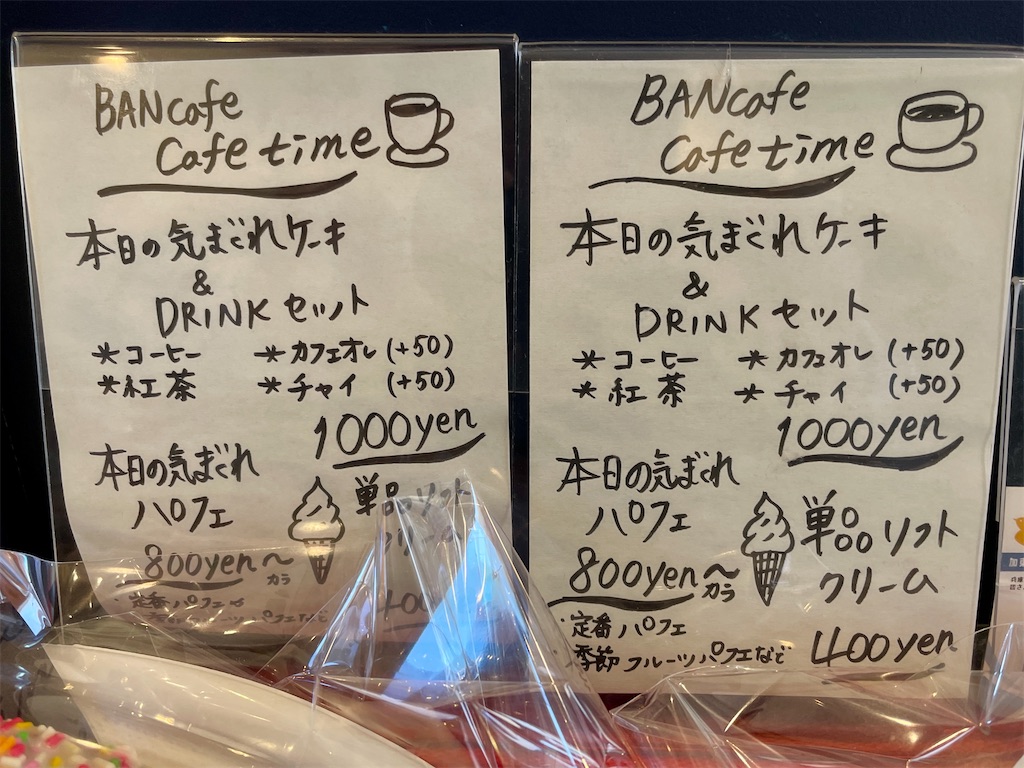 BANcafe
Cafe time
本日の気まぐれケーキ
&
DRINKセット
*コーヒー *カフェオレ(+50)
*紅茶 *チャイ (+50)
1000yen
本日の気まぐれ
パフェ
800yen〜
カラ
・定番パフェ
パフェなど
単品ソフト
クリーム
400
BANcafe
Cafe time
本日の気まぐれケーキ
&
DRINKセット
*コーヒー *カフェオレ(+50)
*紅茶 *チャイ (+50)
1000yen
本日の気まぐれ
パフェ
800yen〜
カラ
・定番パフェ
・季節フルーツパフェなど
単品ソフト
クリーム
400yen